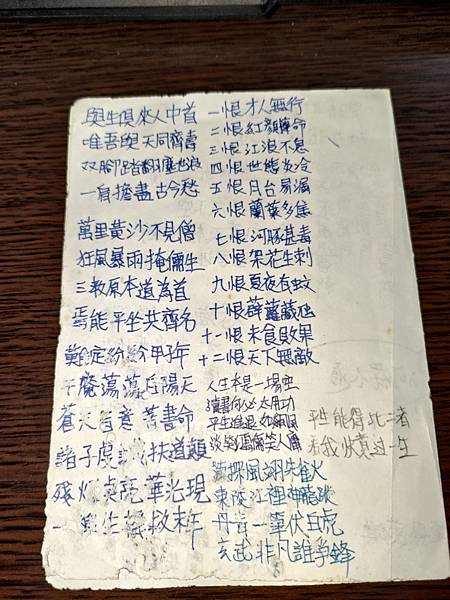 與生俱來人中首
唯吾與天同齊壽
双腳踏翻塵世浪
一肩擔盡古今愁
萬里黃沙不見僧
狂風暴雨掩儒生
三教原本道為首
焉能平坐共齊名
難定紛紛甲子年
千魔蕩蕩后陽天
蒼天有意著書命
諸子虔扶道顛
殘華光現
一生救末年
一恨才人無行
二恨紅顏薄命
三恨江浪不息
四恨世態炎冷
五恨月台易漏
六恨蘭葉多焦
七恨河豚甚毒
八恨架花生刺
九恨夏夜有蚊
十恨薜蘿藏虺
十一恨未食敗果
十二恨天下無敵
人生本是一場空
讀書何必太用功
平生進退如
談笑笑人
探風翊朱雀火
東江裡神龍
丹青一筆伏白虎
玄武非凡誰爭鋒
平生能得此二者
我快过一生